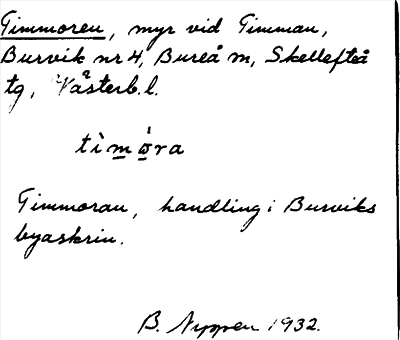 Timmoren, myr vid Timman,
Burvik nr 4, Bureå m, Skellefteå
tg, Västerb. l.
tìmø̀ra
Timmoran, handling i Burviks
byaskrin.
B. Nyppen 1932.